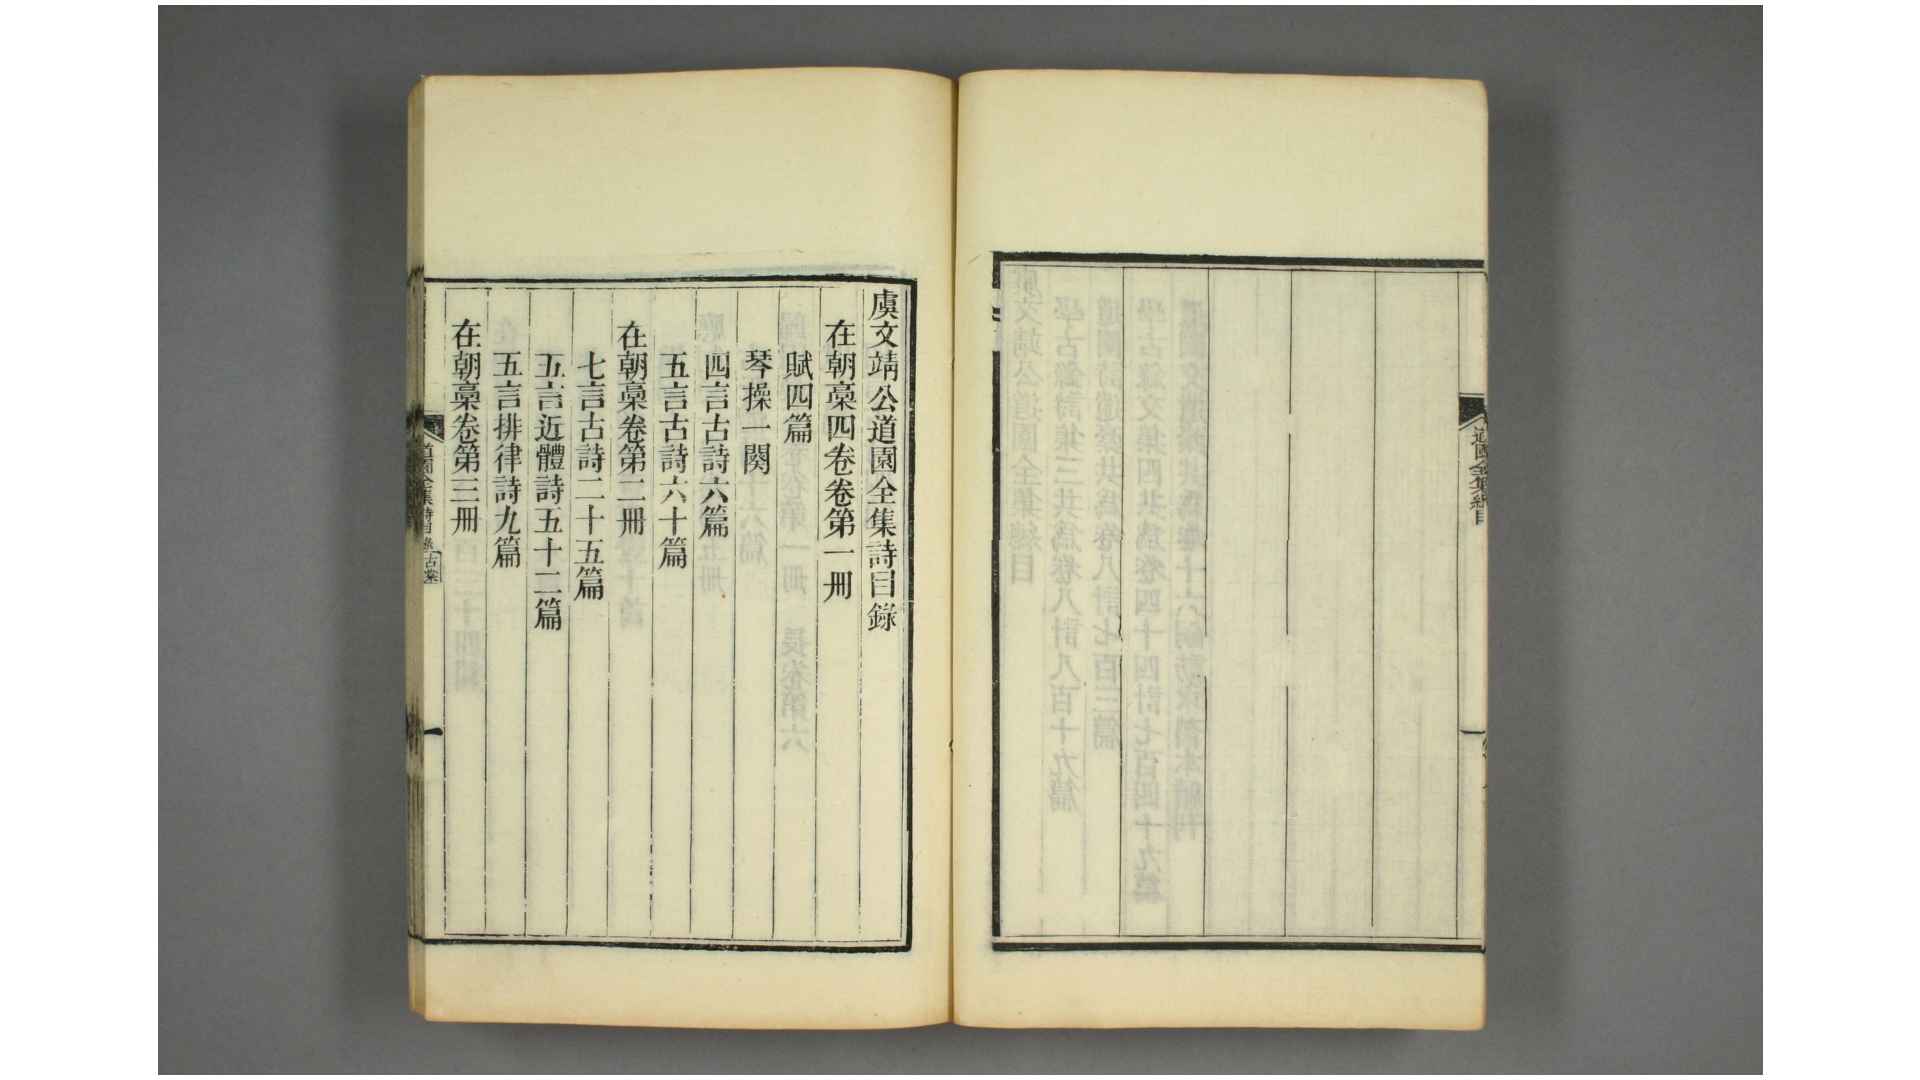 道園全集總目
虞文靖公道園全集詩目錄
在朝稾四卷卷第一冊
賦四篇
琴操一闋
四言古詩六篇
五言古詩六十篇
在朝稾卷第二冊
七言古詩二十五篇
五言近體詩五十二篇
五言排律詩九篇
在朝稾卷第三冊
道園全集
一